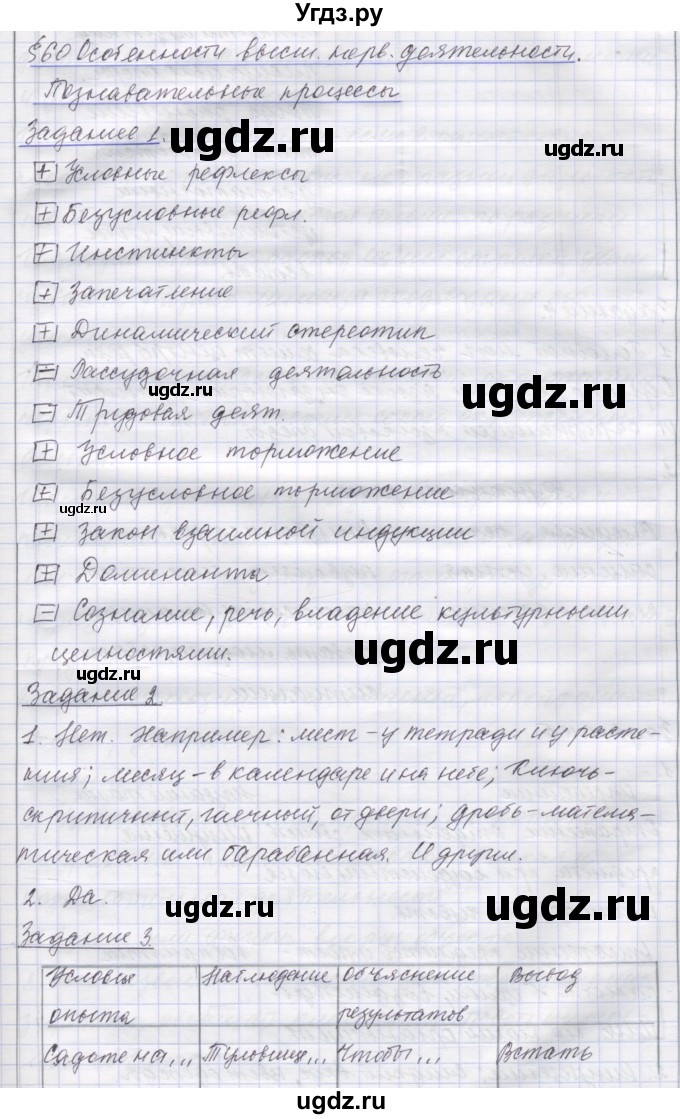 Угдз.ру
§60 Особенности высш. нерв. деятельности.
Познавательные процессы
Задание 1.
ugdz.ru
ugdz.ru
+ Условные рефлексы
+ Безусловные рефл.
+ Инстинкты
+ Запечатление
ugdz.ru
+ Динамический стереотип
- Рассудочная деятельность
ugdz.ru
ugdz.ru
- Трудовая деят.
+ Условное торможение
+ Безусловное торможение
ugdz.ru
+ Закон взаимной индукции
+ Доминанта
- Сознание, речь, владение культурными
ценностями.
ugdz.ru
ugdz.ru
Задание 2
1. Нет. Например: лист - у тетради и у расте-
ния; месяц - в календаре и на небе; Ключ-
скрипичный, гаечный, от двери; дробь-матема-
тическая или барабанная. И други.
2. Да.
ugdz.ru
ugdz.ru
Задание 3.
Условья опыта | Наблюдение | Объяснение результатов | Вывод
Сядьте на... | Туловище... | Чтобы... | Встать
ugdz.ru